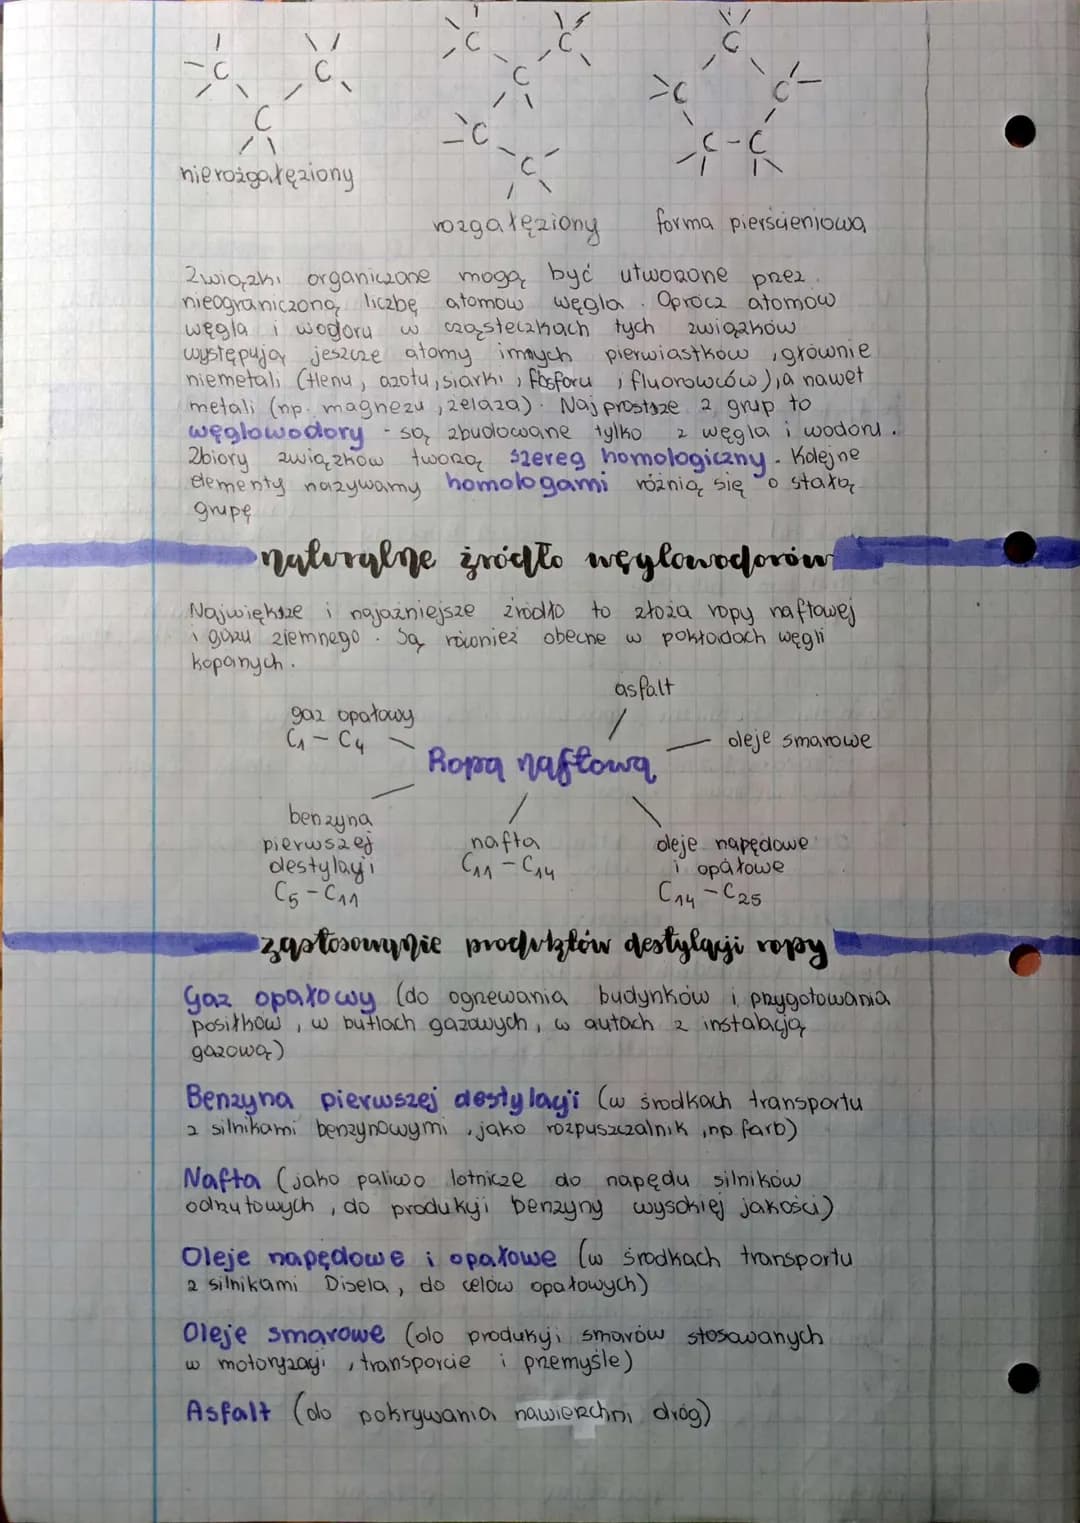 C C C
nierozgałęziony
C C C C C
rozgałęziony
C C C C - C
forma pierścieniowa
Związki organiczne mogą być utworzone przez
nieograniczoną liczbę atomow węgla . Oprócz atomow
węgla i wodoru w cząsteczkach tych związków
występują jeszcze atomy innych pierwiastkow , głównie
niemetali (tlenu , azotu , siarki , fosforu , fluorowców) , a nawet
metali (np. magnezu , żelaza) . Najprostsze z grup to
węglowodory - są zbudowane tylko z węgla i wodoru .
Zbiory związków tworzą szereg homologiczny . Kolejne
elementy nazywamy homologami różnią się o stałą
grupę
naturalne źródło węglowodorów
Największe i najażniejsze źródło to złoża ropy naftowej
i gazu ziemnego . Są również obecne w pokładach węgli
kopanych .
asfalt
gaz opałowy
C1 - C4
oleje smarowe
Ropa naftowa
benzyna
pierwszej
destylacji
C5 - C11
nafta
C11 - C14
oleje napędowe
i opałowe
C14 - C25
zastosowanie produktów destylacji ropy
Gaz opałowy (do ogrzewania budynków i przygotowania
posiłków , w butlach gazowych , w autach z instalacją
gazową)
Benzyna pierwszej destylacji (w środkach transportu
z silnikami benzynowymi , jako rozpuszczalnik , np farb)
Nafta (jako paliwo lotnicze do napędu silników
odrzutowych , do produkcji benzyny wysokiej jakości)
Oleje napędowe i opałowe (w środkach transportu
z silnikami Disela , do celów opałowych)
Oleje smarowe (do produkcji smarów stosowanych
w motoryzacji , transporcie i przemyśle)
Asfalt (do pokrywania nawierzchni dróg)